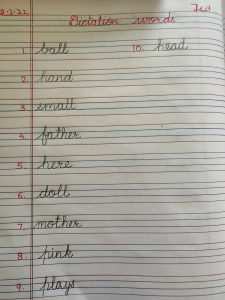 8.2.22 Test
Dictation words
1. ball 10. head
2. hand
3. small
4. father
5. here
6. doll
7. mother
8. pink
9. plays